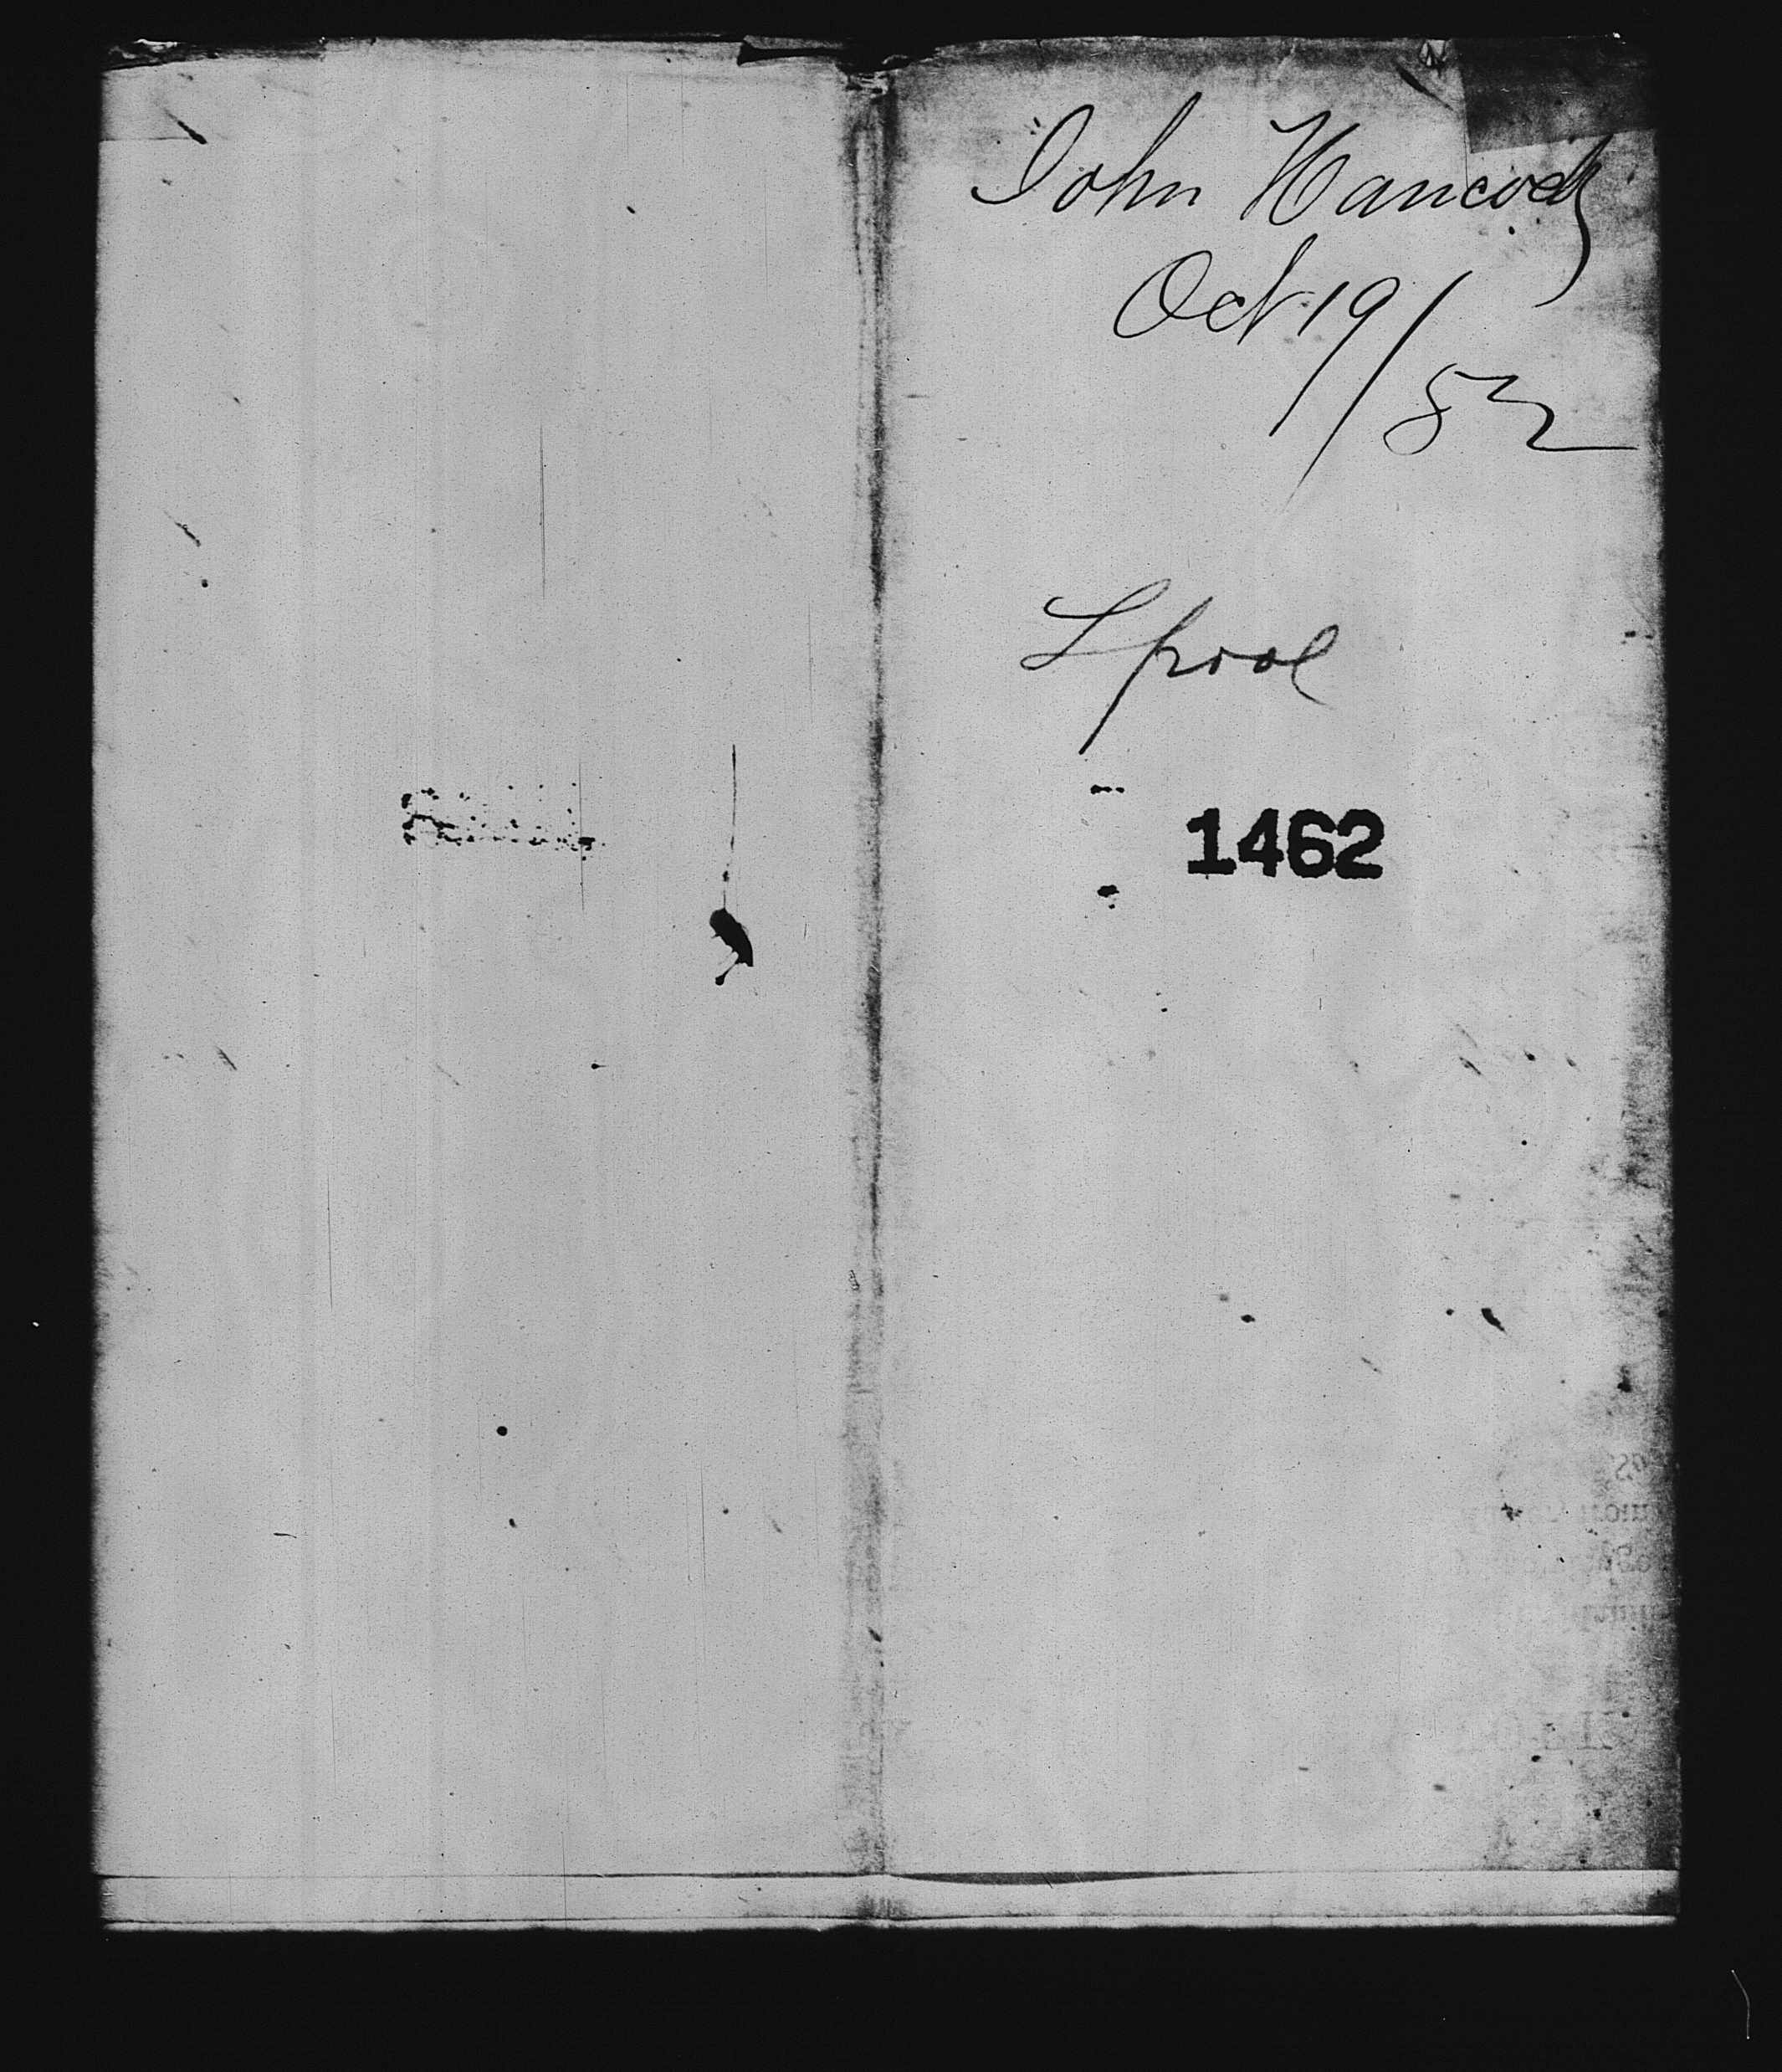 John Hancock
Oct 19/82
Lpool
1462